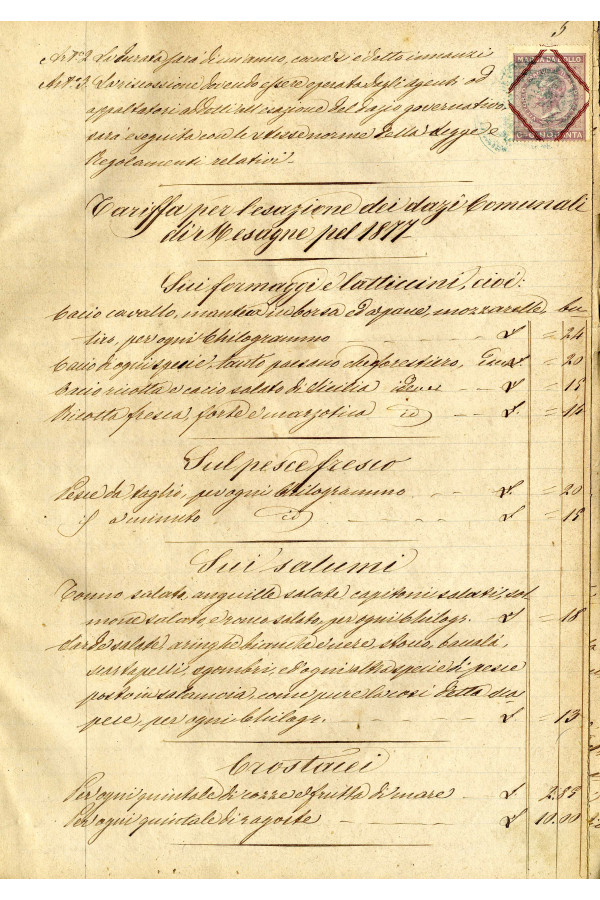 5
MARCA DA BOLLO
CINQUANTA
Art.º 2. La durata sarà di un anno, come si è detto innanzi
Art.º 3. La riscossione dovendo essere operata dagli agenti od
appaltatori addetti all'esazione del dazio governativo
sarà eseguita con le stesse norme della Legge e
Regolamenti relativi.
Tariffa per l'esazione dei dazî Comunali
di Mesagne pel 1877
Sui formaggi e latticcini, cioè:
Cacio cavallo, manteca in borsa ed a pane, mozzarelle, bu-
tiro, per ogni Chilogrammo £ = 24
Cacio d'ogni specie, tanto paesano che forestiero, £ = 20
Cacio ricotta o cacio salato di Sicilia idem £ = 15
Ricotta fresca, forte e marzotica id £ = 14
Sul pesce fresco
Pesce da taglio, per ogni Chilogrammo £ = 20
id a minuto id £ = 15
Sui salumi
Tonno salato, anguille salate capitoni salati, sal-
mone salato, e salato, per ogni Chilogr. £ = 18
Sarde salate aringhe bianche e nere, stocco, baccalà,
scartapelli, sgombri, ed ogni altra specie di pesce
posto in salamoia, come pure la così detta
pece, per ogni Chilogr. £ = 13
Crostacei
Per ogni quintale di cozze e frutta di mare £ 2.85
Per ogni quintale di ragoste £ 10.00